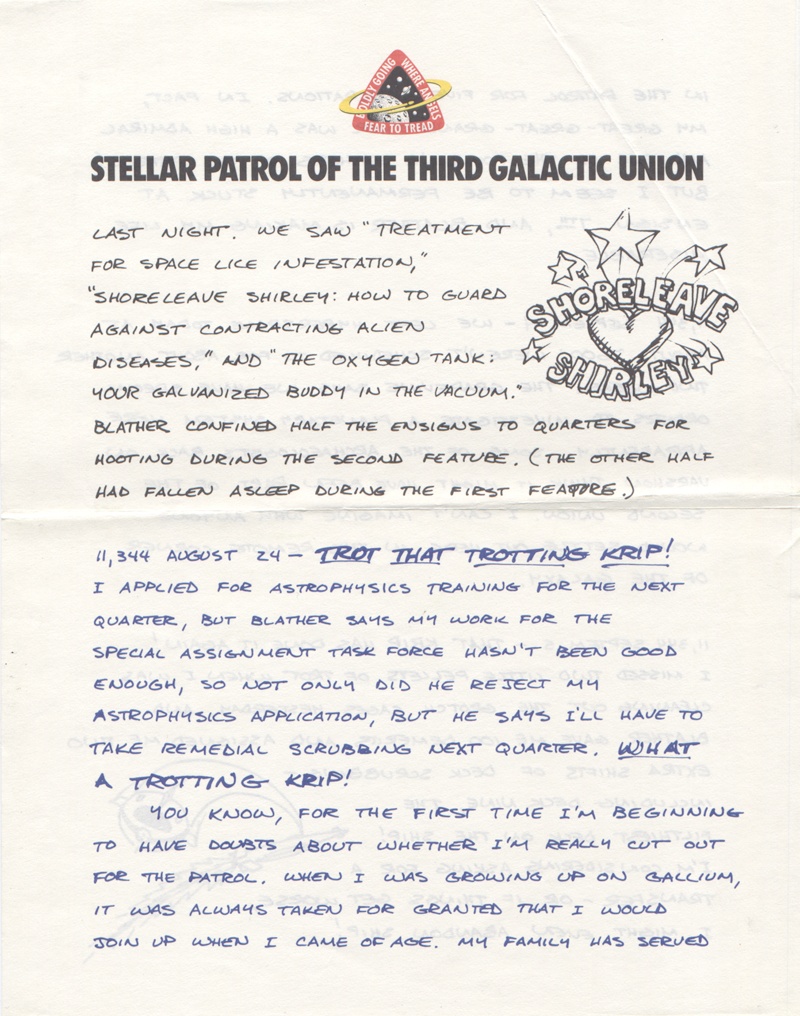 BOLDLY GOING WHERE ANGELS
FEAR TO TREAD
STELLAR PATROL OF THE THIRD GALACTIC UNION
LAST NIGHT. WE SAW "TREATMENT
FOR SPACE LICE INFESTATION,"
"SHORELEAVE SHIRLEY: HOW TO GUARD
AGAINST CONTRACTING ALIEN
DISEASES," AND "THE OXYGEN TANK:
YOUR GALVANIZED BUDDY IN THE VACUUM."
SHORELEAVE
SHIRLEY
BLATHER CONFINED HALF THE ENSIGNS TO QUARTERS FOR
HOOTING DURING THE SECOND FEATURE. (THE OTHER HALF
HAD FALLEN ASLEEP DURING THE FIRST FEATURE.)
11,344 AUGUST 24 – TROT THAT TROTTING KRIP!
I APPLIED FOR ASTROPHYSICS TRAINING FOR THE NEXT
QUARTER, BUT BLATHER SAYS MY WORK FOR THE
SPECIAL ASSIGNMENT TASK FORCE HASN'T BEEN GOOD
ENOUGH, SO NOT ONLY DID HE REJECT MY
ASTROPHYSICS APPLICATION, BUT HE SAYS I'LL HAVE TO
TAKE REMEDIAL SCRUBBING NEXT QUARTER. WHAT
A TROTTING KRIP!
YOU KNOW, FOR THE FIRST TIME I'M BEGINNING
TO HAVE DOUBTS ABOUT WHETHER I'M REALLY CUT OUT
FOR THE PATROL. WHEN I WAS GROWING UP ON GALLIUM,
IT WAS ALWAYS TAKEN FOR GRANTED THAT I WOULD
JOIN UP WHEN I CAME OF AGE. MY FAMILY HAS SERVED